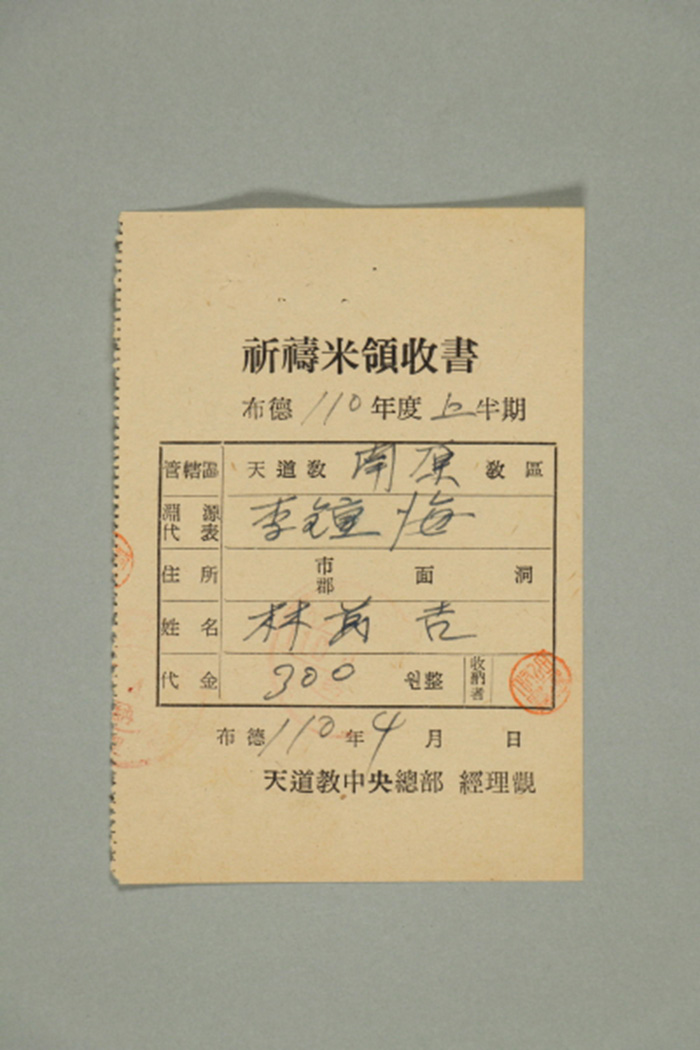 祈禱米領收書
布德 110 年度 上 半期
管轄區 天道敎 南原 敎區
淵源代表 李鐘海
住所 市郡 面 洞
姓名 林 吉
代金 300 원整 收納者
布德 110 年 4 月 日
天道敎中央總部 經理觀